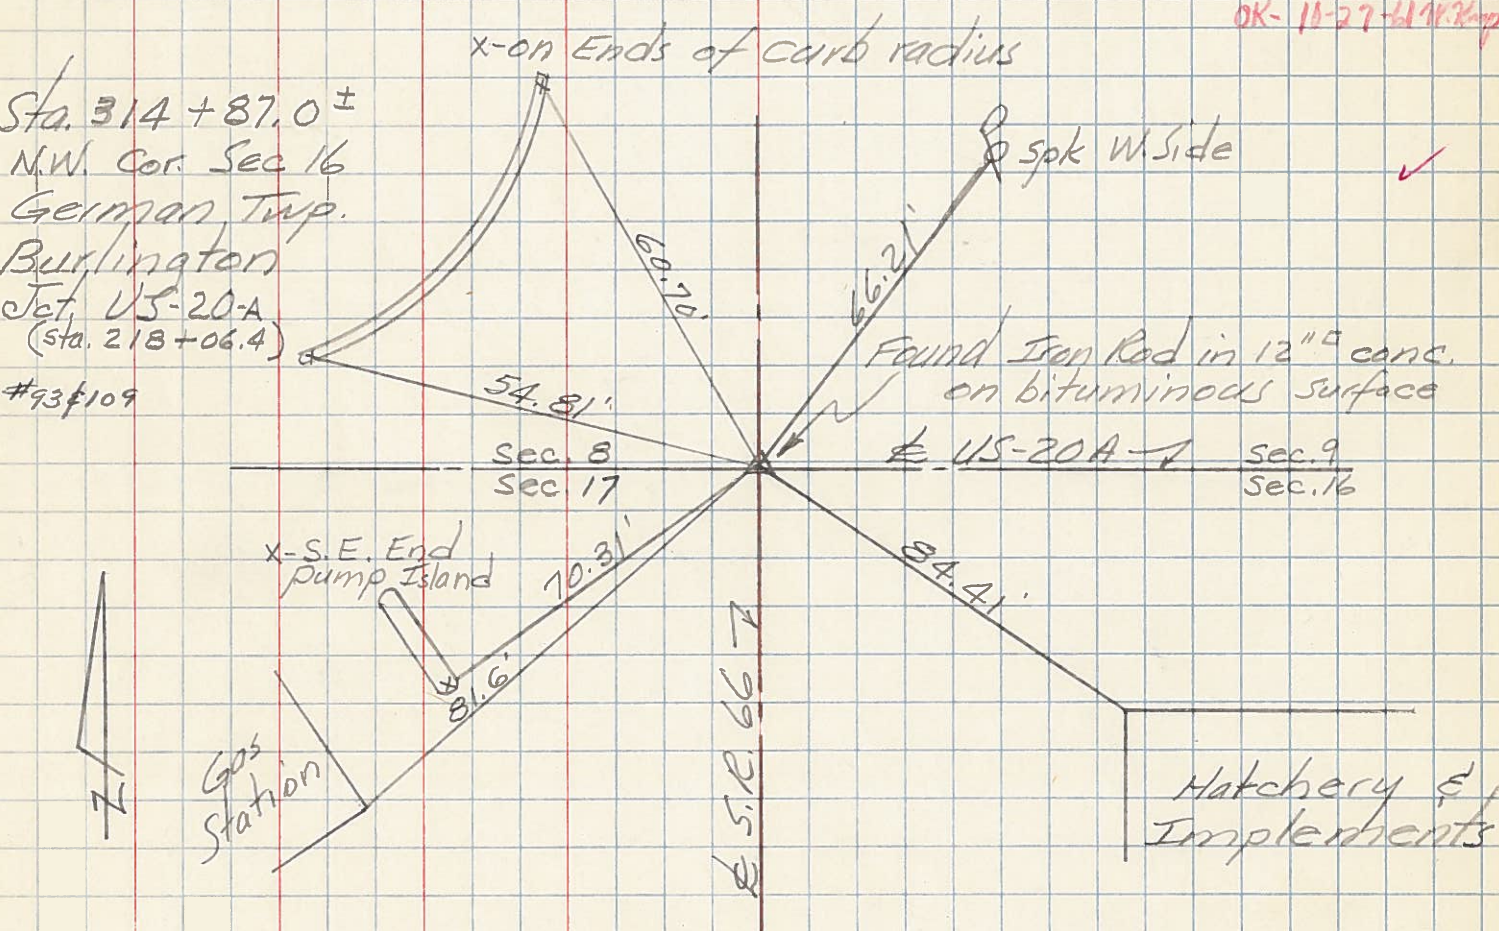 OK- 10-27-61
x-on Ends of curb radius
Sta. 314 + 87.0 ±
N.W. Cor. Sec 16
German Twp.
Burlington
Jct. US-20-A
(sta. 218+06.4)
#93&109
spk W. Side
60.70'
66.21'
Found Iron Rod in 12"□ conc.
on bituminous surface
54.81'
Sec. 8
Sec. 17
℄ US-20A
Sec. 9
Sec. 16
x-S.E. End
pump Island
70.31'
84.41'
81.6'
℄ S.R. 66
Gas
Station
N
Hatchery &
Implements